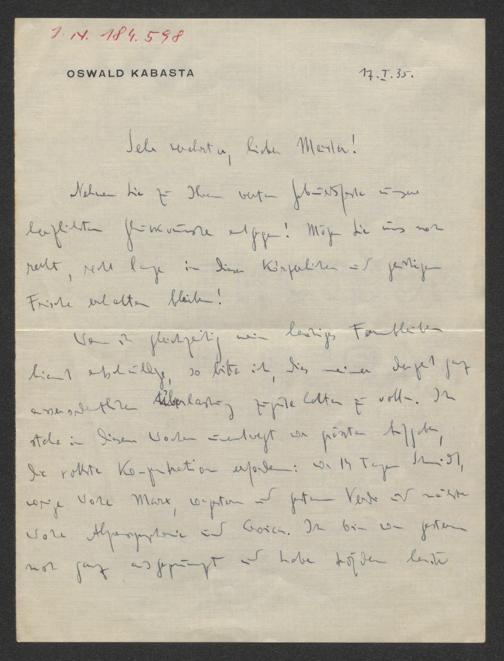 I.N. 184.598
OSWALD KABASTA
17.I.35.
Sehr verehrter, lieber Meister!
Nehmen Sie zu Ihrem werten Geburtsfeste unsere
herzlichsten Glückwünsche entgegen! Mögen Sie uns noch
recht, recht lange in dieser körperlichen und geistigen
Frische erhalten bleiben!
Wenn ich gleichzeitig mein heutiges Fernbleiben
hiemit entschuldige, so bitte ich, dies meiner derzeit ganz
ausserordentlichen Überlastung zugute halten zu wollen. Ich
stehe in diesen Wochen vor grössten Aufgaben,
die vollste Konzentration erfordern: vor 14 Tagen Schmidt,
vorige Woche Marx, vorgestern und gestern Verdi und nächste
Woche Alpensymphonie und Eroica. Ich bin von gestern
noch ganz ausgepumpt und habe heute